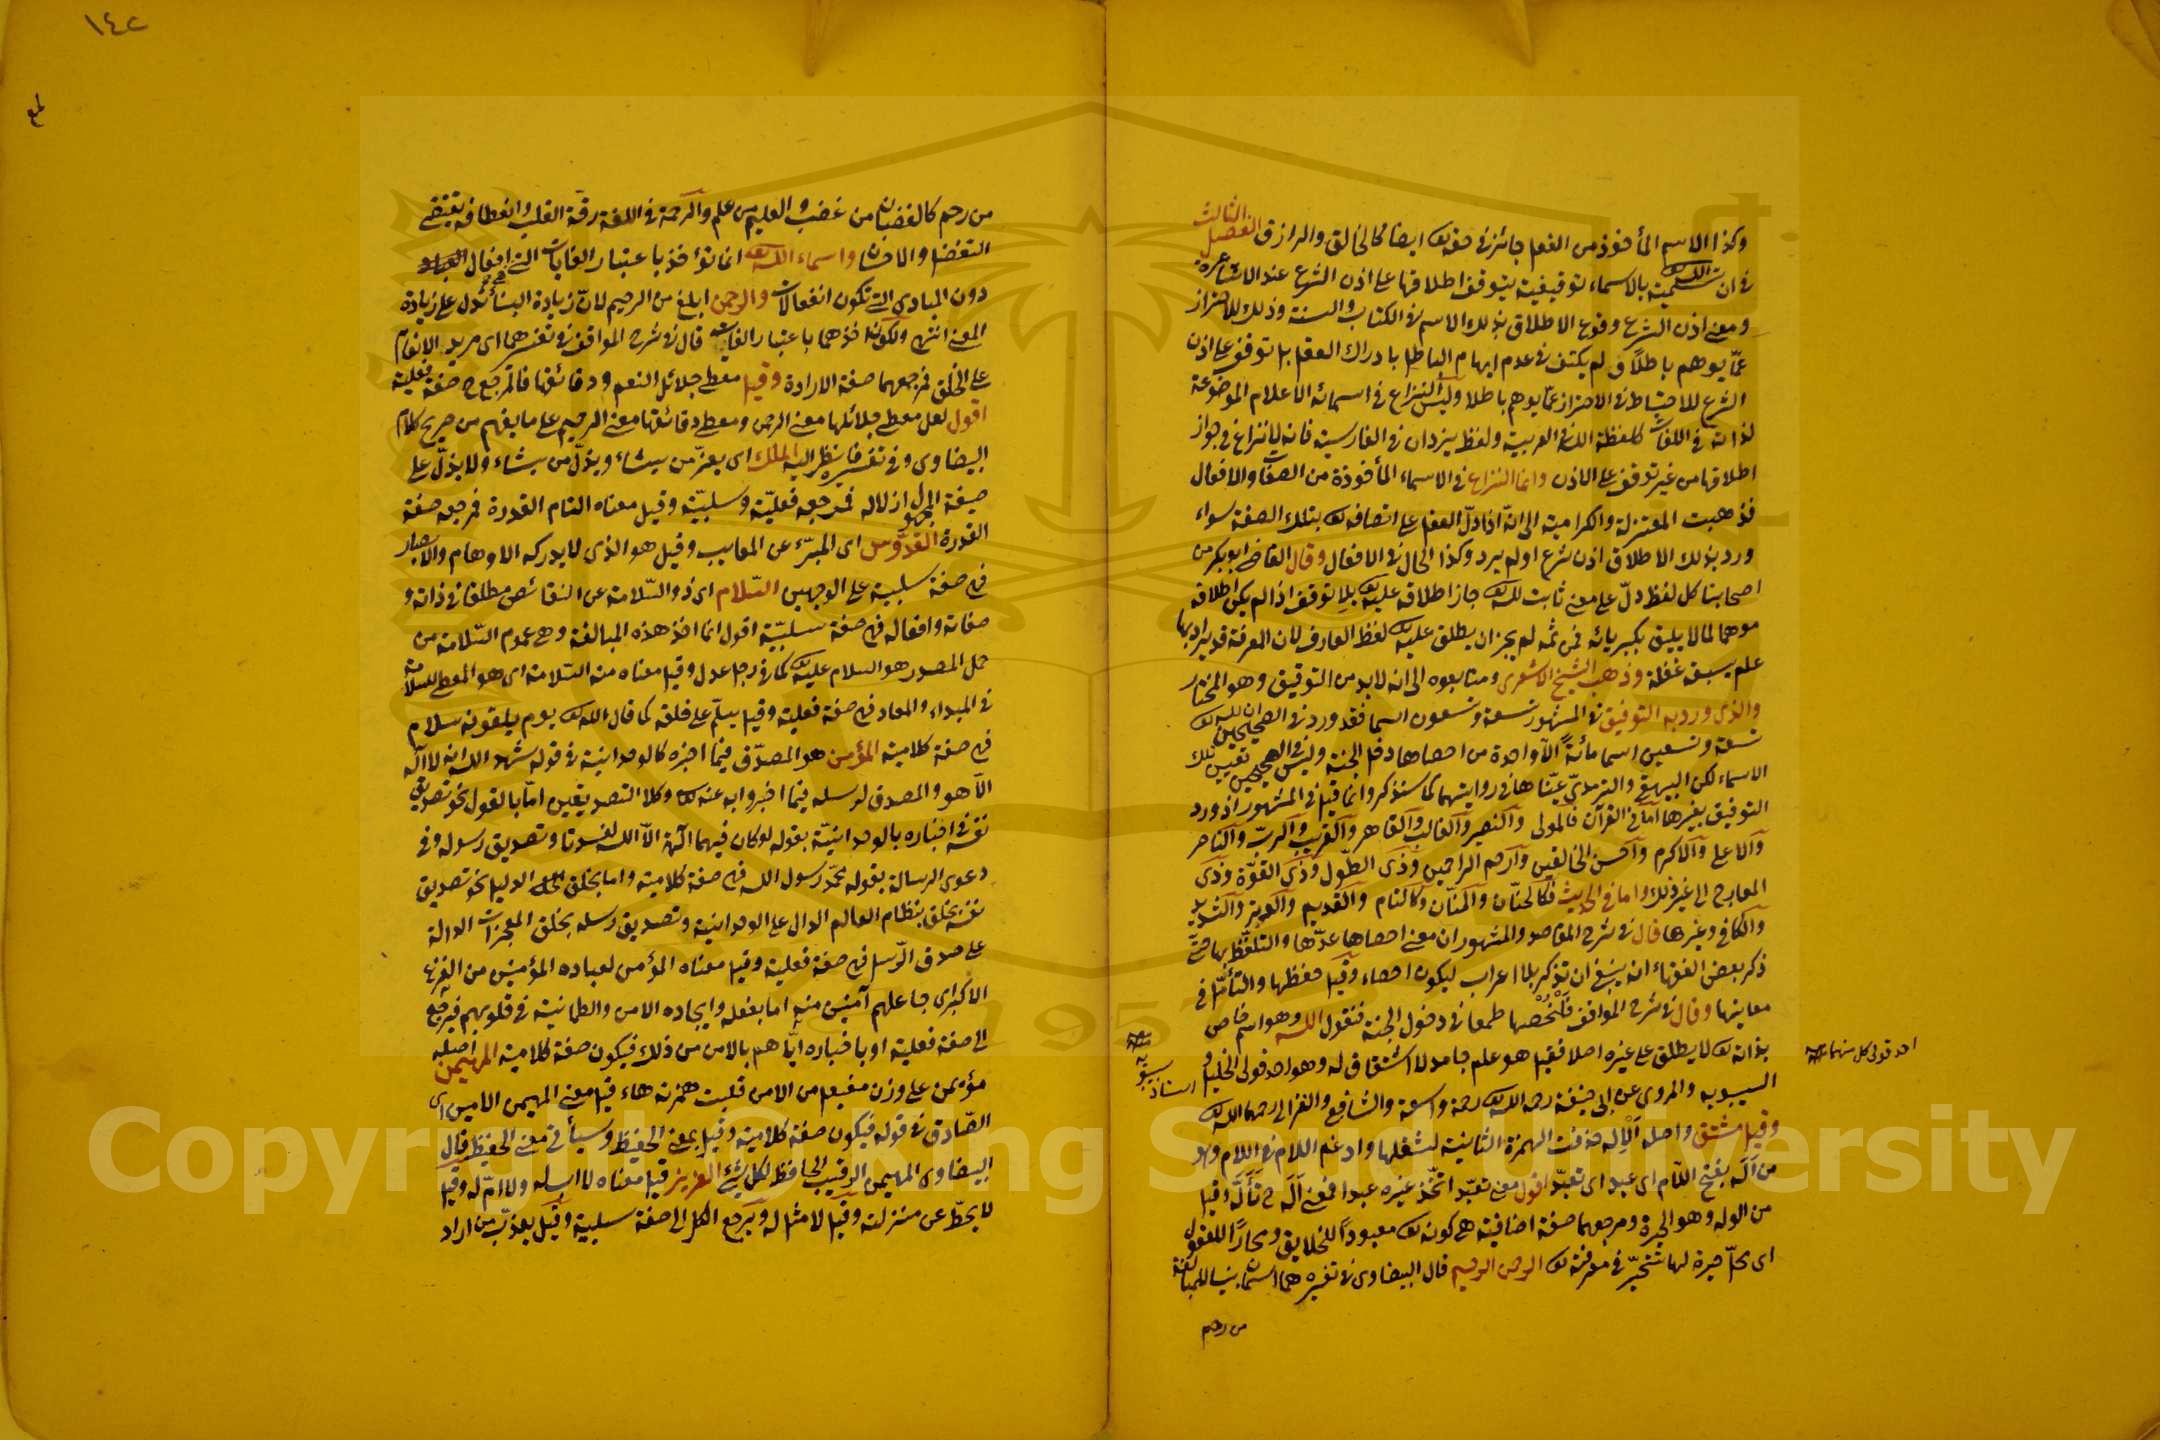 وكذا الاسم المأخوذ من الفعل جائز في حقه تعالى ايضا كالخالق والرازق الفصل الثالث
في ان تسميته بالاسماء توقيفية يتوقف اطلاقها على اذن الشرع عند الاشاعرة
ومعنى اذن الشرع وقوع الاطلاق بذلك الاسم في الكتاب والسنة وذلك للاحتراز
عمّا يوهم باطلا و لم يكتف في عدم ايهام الباطل بادراك العقل بل توقف على اذن
الشرع للاحتياط في الاحتراز عمّا يوهم باطلا وليس النزاع في اسمائه الاعلام الموضوعة
لذاته في اللغات كلفظة الله في العربية ولفظ يزدان في الفارسية فانه لا نزاع في جواز
اطلاقها من غير توقف على الاذن وانما النزاع في الاسماء المأخوذة من الصفات والافعال
فذهبت المعتزلة والكرامية الى انه اذا دلّ العقل على اتصافه تعالى بتلك الصفة سواء
ورد بذلك الاطلاق اذن شرع او لم يرد وكذا الحال في الافعال وقال القاضى ابو بكر من
اصحابنا كل لفظ دلّ على معنى ثابت لله تعالى جاز اطلاقه عليه تعالى بلا توقف اذا لم يكن اطلاقه
موهما لما لا يليق بكبريائه فمن ثمه لم يجز ان يطلق عليه تعالى لفظ العارف لان المعرفة قد يراد بها
علم يسبقه غفلة وذهب الشيخ الاشعرى ومتابعوه الى انه لابد من التوقيف وهو المختار
والذى ورد به التوقيف في المشهور تسعة وتسعون اسما فقد ورد في الصحيحين ان لله تعالى
تسعة وتسعين اسما مائة الّا واحدة من احصاها دخل الجنة وليس في الصحيحين تعيين تلك
الاسماء لكن البيهقى والترمذىّ عيّناها في روايتهما كما سنذكر وانما قيل في المشهور اذ ورد
التوقيف بغيرها اما في القرآن فالمولى والنصير والغالب والقاهر والقريب والربّ والناصر
والاعلى والاكرم واحسن الخالقين وارحم الراحمين وذى الطّول وذى القوّة وذى
المعارج الى غير ذلك واما في الحديث فكالحنّان والمنّان وكالتام والقديم والوتر والشديد
والكافى وغيرها قال في شرح المقاصد والمشهور ان معنى احصاها عدّها والتلفّظ بها حتّى
ذكر بعض الفقهاء انه ينبغى ان تذكر بلا اعراب ليكون احصاء وقيل حفظها والتأمّل في
معانيها وقال في شرح المواقف فلنحصها طمعا في دخول الجنة فنقول الله وهو اسم خاص
بذاته تعالى لا يطلق على غيره اصلا فقيل هو علم جامد لا اشتقاق له وهو احد قولى الخليل و
احد قولى كل منهما
استاذ سيبويه
السيبويه والمروى عن ابى حنيفة رحمه الله تعالى رحمة واسعة والشافعى والغزالى رحمهما الله تعالى
وقيل مشتق واصله الاله حذفت الهمزة الثانية لثقلها وادغم اللام في اللام وهو
من اله بفتح اللام اى عبد اى تعبّد اقول معنى تعبّد اتّخذ غيره عبدا فمعنى اله ح تألّه وقيل
من الوله وهو الحيرة ومرجعهما صفة اضافية هى كونه تعالى معبودا للخلايق ومحارًا للعقول
اى محلّ حيرة لها تتحيّر في معرفته تعالى الرحمن الرحيم قال البيضاوى في تفسيره هما اسمان بنيا للمبالغة
من رحم
١٤٢
من رحم كالغضبان من غضب والعليم من علم والرحمة في اللغة رقّة القلب وانعطاف يقتضى
التفضل والاحسان واسماء الله تعالى انما تؤخذ باعتبار الغايات التى هى افعال
دون المبادى التى تكون انفعالات والرحمن ابلغ من الرحيم لانّ زيادة البناء تدل على زيادة
المعنى انتهى ولكون اخذهما باعتبار الغايات قال في شرح المواقف في تفسيرهما اى مريد الانعام
على الخلق فمرجعهما صفة الارادة وقيل معطى جلائل النعم ودقائقها فالمرجع ح صفة فعلية
اقول لعل معطى جلائلها معنى الرحمن ومعطى دقائقها معنى الرحيم على ما يفهم من صريح كلام
البيضاوى في تفسيره فانظر اليه الملك اى يعزّ من يشاء ويذلّ من يشاء ولا يذلّ على
صيغة المجهول اذلاله فمرجعه فعليّة وسلبيّة وقيل معناه التام القدرة فمرجعه صفة
القدرة القدّوس اى المبرّء عن المعايب وقيل هو الذى لا يدركه الاوهام والابصار
فهى صفة سلبية على الوجهين السّلام اى ذو السّلامة عن النقائص مطلقا في ذاته و
صفاته وافعاله فهى صفة سلبيّة اقول انما اخذ هذه المبالغة وهى عموم السّلامة من
حمل المصدر هو السلام عليه تعالى كما في رجل عدل وقيل معناه منه السّلامة اى هو المعطى للسلامة
في المبداء والمعاد فهى صفة فعلية وقيل يسلّم على خلقه كما قال الله تعالى يوم يلقونه سلام
فهى صفة كلامية المؤمن هو المصدّق فيما اخبره كالوحدانية في قوله شهد الله انه لا اله
الّا هو والمصدق لرسله فيما اخبروا به عنه تعالى وكلا التصديقين امّا بالقول نحو تصديق
نفسه في اخباره بالوحدانيّة بقوله لو كان فيهما آلهة الّا الله لفسدتا وتصديق رسوله في
دعوى الرسالة بقوله محمّد رسول الله فهى صفة كلامية واما بخلق الدليل نحو تصديق
نفسه بخلق نظام العالم الدال على الوحدانية وتصديق رسله بخلق المعجزات الدالة
على صدق الرّسل فهى صفة فعلية وقيل معناه المؤمن لعباده المؤمنين من الفزع
الاكبر اى جاعلهم آمنين منه اما بفعله وايجاده الامن والطمانية في قلوبهم فيرجع
الى صفة فعلية او باخباره ايّاهم بالامن من ذلك فيكون صفة كلامية المهيمن اصله
مؤيمن على وزن مفيعل من الامن قلبت همزته هاء قيل معنى المهيمن الامين اى
الصّادق في قوله فيكون صفة كلامية وقيل بمعنى الحفيظ وسيأتى معنى الحفيظ قال
البيضاوى المهيمن الرقيب الحافظ لكل شئ العزيز قيل معناه لا اب له ولا امّ له وقيل
لا يحطّ عن منزلته وقيل لا مثل له ويرجع الكل الى صفة سلبية وقيل يعذّب من اراد
Copyright © King Saud University
1957